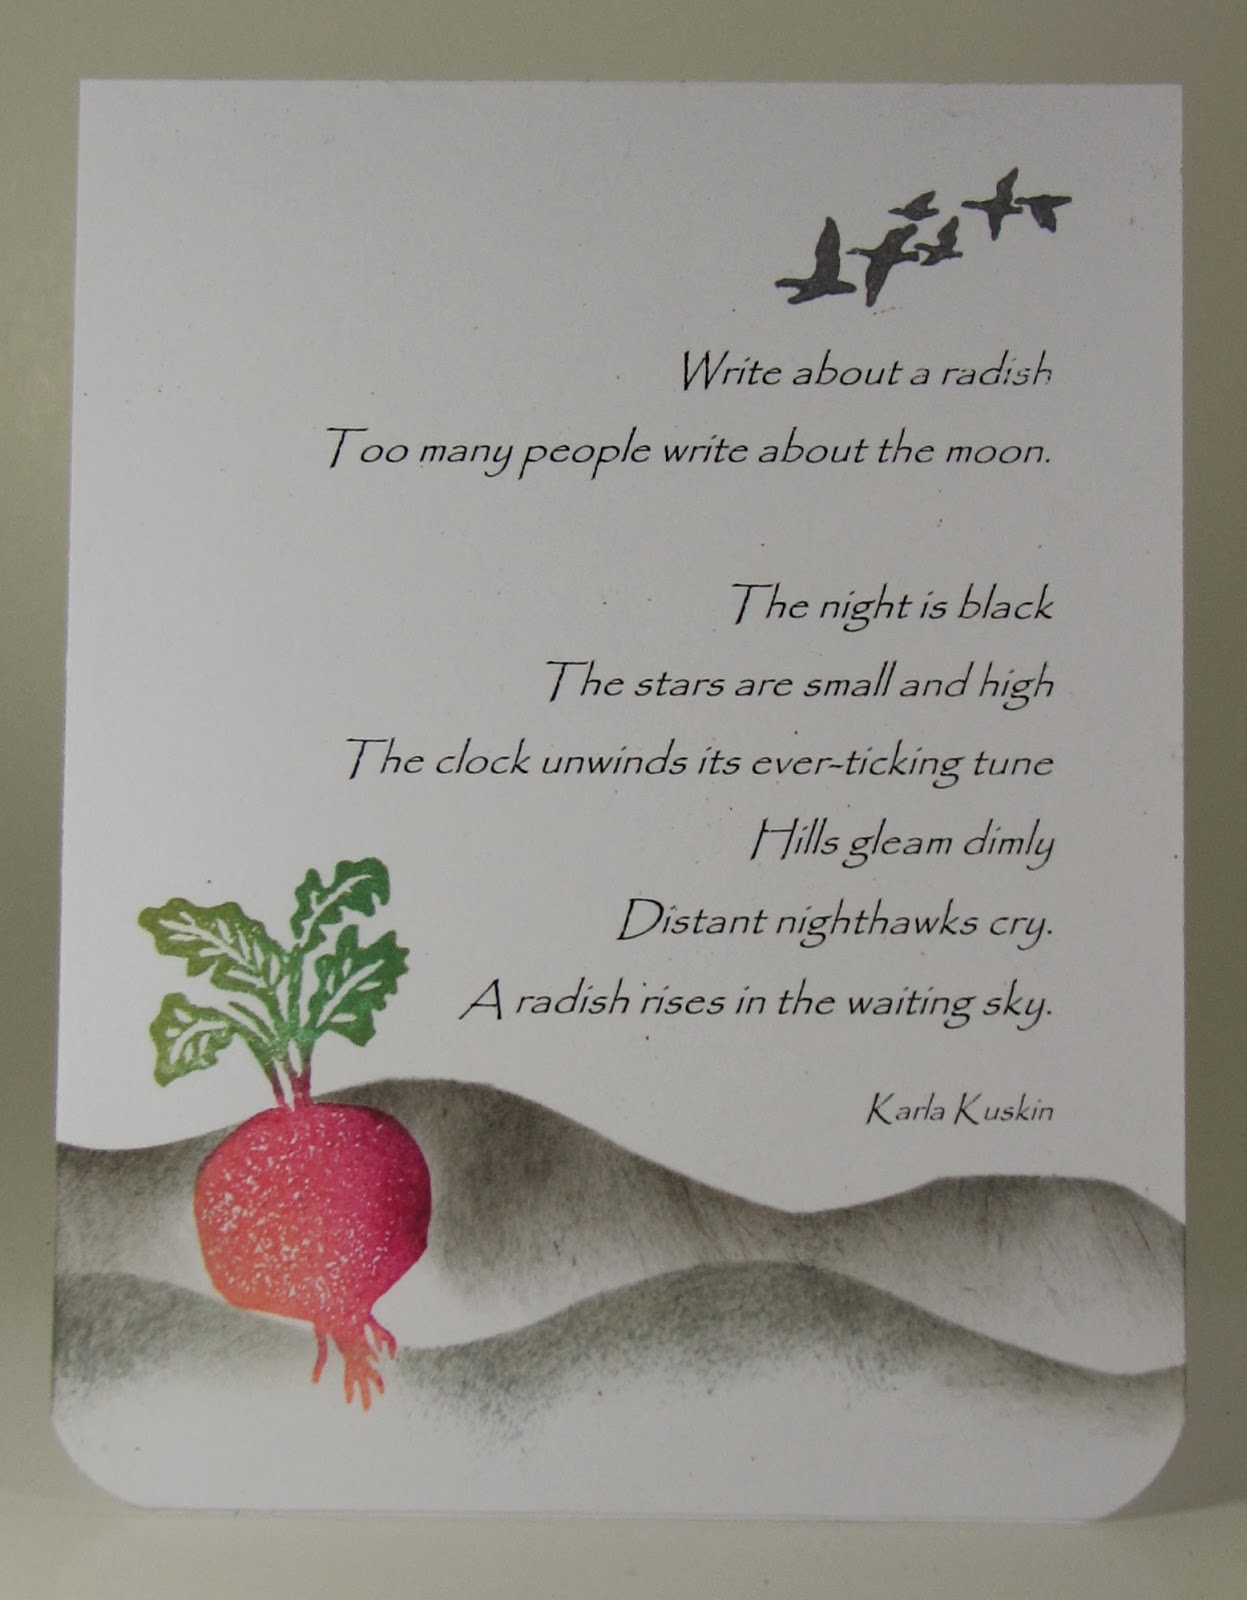 Write about a radish
Too many people write about the moon.
The night is black
The stars are small and high
The clock unwinds its ever-ticking tune
Hills gleam dimly
Distant nighthawks cry.
A radish rises in the waiting sky.
Karla Kuskin